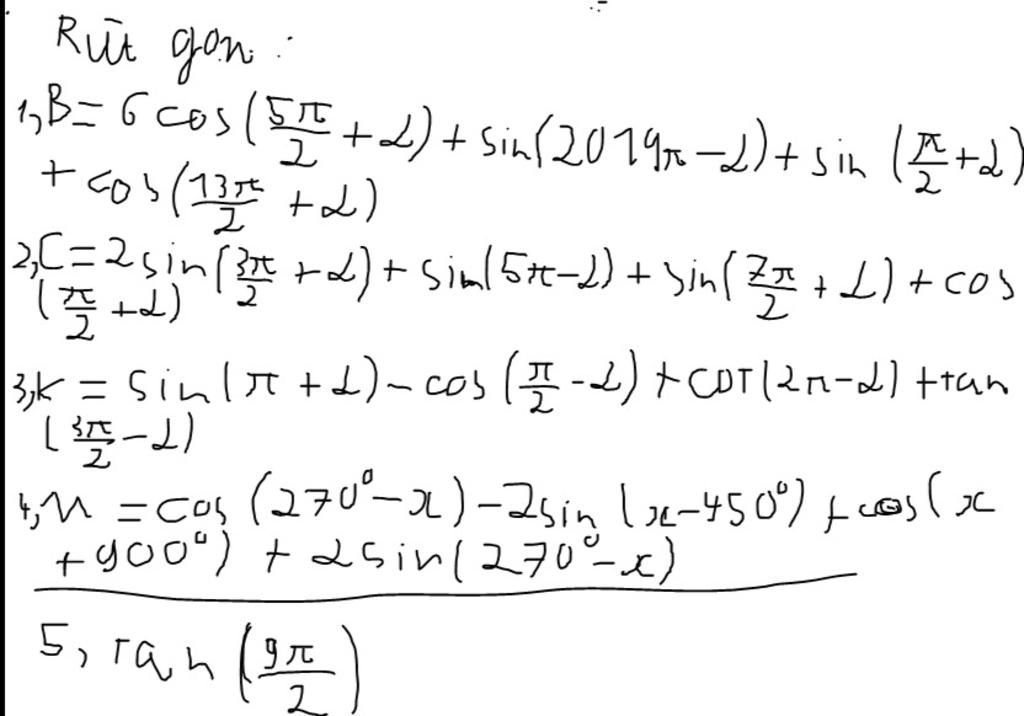 Rút gọn :
1, B = 6 cos(5π/2 + α) + sin(2019π - α) + sin (π/2 + α)
+ cos(13π/2 + α)
2, C = 2 sin(3π/2 + α) + sin(5π - α) + sin(7π/2 + α) + cos
(π/2 + α)
3, K = sin(π + α) - cos(π/2 - α) + cot(2π - α) + tan
(3π/2 - α)
4, M = cos (270° - x) - 2sin (x - 450°) + cos(x
+ 900°) + 2 sin(270° - x)
5, tan (9π/2)